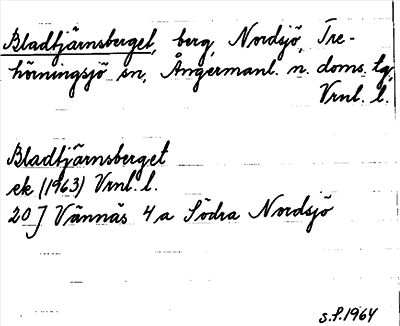 Bladtjärnsberget, berg, Nordsjö, Tre-
hörningsjö sn, Ångermanl. n. doms. tg,
Vrnl. l.
Bladtjärnsberget
ek (1963) Vrnl. l.
20 J Vännäs 4 a Södra Nordsjö
s.f. 1964